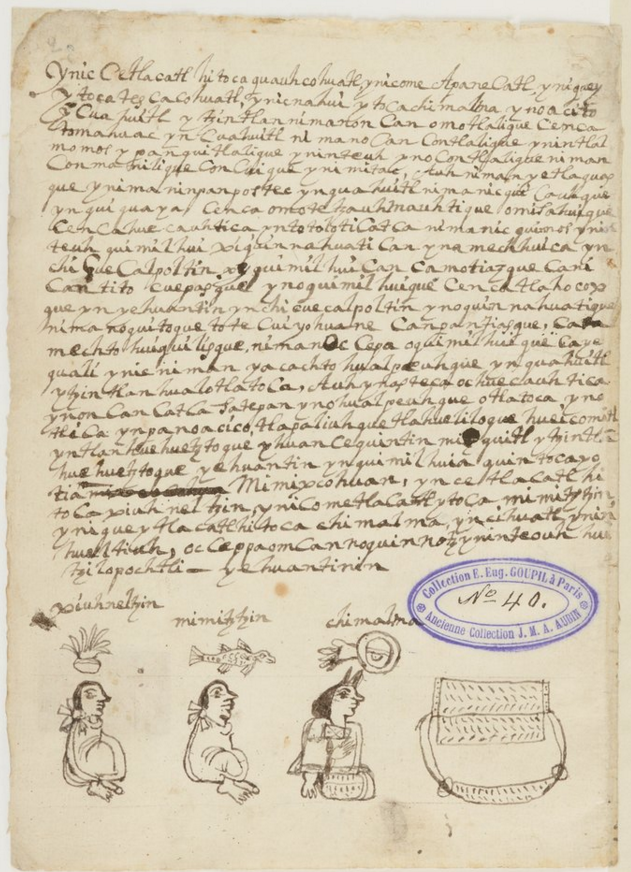 ynic Ce tlacatl hi toca quauhcohuatl, ynic ome Apanecatl, yniquey
ytoca tezcacohuatl, ynic nahui ytoca chimalma, yn oacito
Cuahuitl ytzintlan nimaron Can omotlalique Cenca
tomahuac yn Cuahuitl nimanoCan Contlalique yn intlal
momos ypan quitlalique yn inteuh yn oContlalique niman
Conmanilique Conqui que yn imitac, Auh niman ye tlaquaz
que yniman inpan poztec yn quahuitl nimanic
yn quiquaya, Cenca
Cenca huecauhtica yn totoloti Catca nimanic quinotz yn in
teuh quimilhui xiquinnahuati Can yn amechhuica yn
chiCue Calpoltin xiquimilhui Can Camo tiazque Cani
Can tito Cuepazque ynoquimilhuique Cenca tlahocox
que yn yehuantin yn chicuecalpoltin yn oquinnahuatique
nimanoquitoque totecuiyohuane Canpantiazque, Ca
mechtohuiquilizque, nimanoc Cepa oquimilhuique Caye
quali ynic niman yacachto hualpeuhque yn quahuitl
ytzintlan hualotlatoca, Auh yn azteca oc huecauhtica
ynonCan Catca Satepan yn ohualpeuhque otlatoca, yn o
tliCa ynpan oacico, tlapaliuhque tlahueliloque huei comitl
yntlan huehuetztoque yhuan cequintin mizquitl ytzintla
huehuetztoque yehuantin yn quimilhuia quintocayo
tia Mimixcohuan, yn ce tlacatl hi
toCa xiuhneltzin, ynic ome tlacatl ytoca mimitzin,
yniquey tlacatl hitoca chimalma, yn cihuatl yn in
hueltiuh, oc ceppa omCan noquinnotz yn inteouh hui
tzilopochtli — yehuantinin
xiuhneltzin
mimitzin
chimalma
Collection E. Eug. GOUPIL à Paris
Nº 40.
Ancienne Collection J. M. A. AUBIN